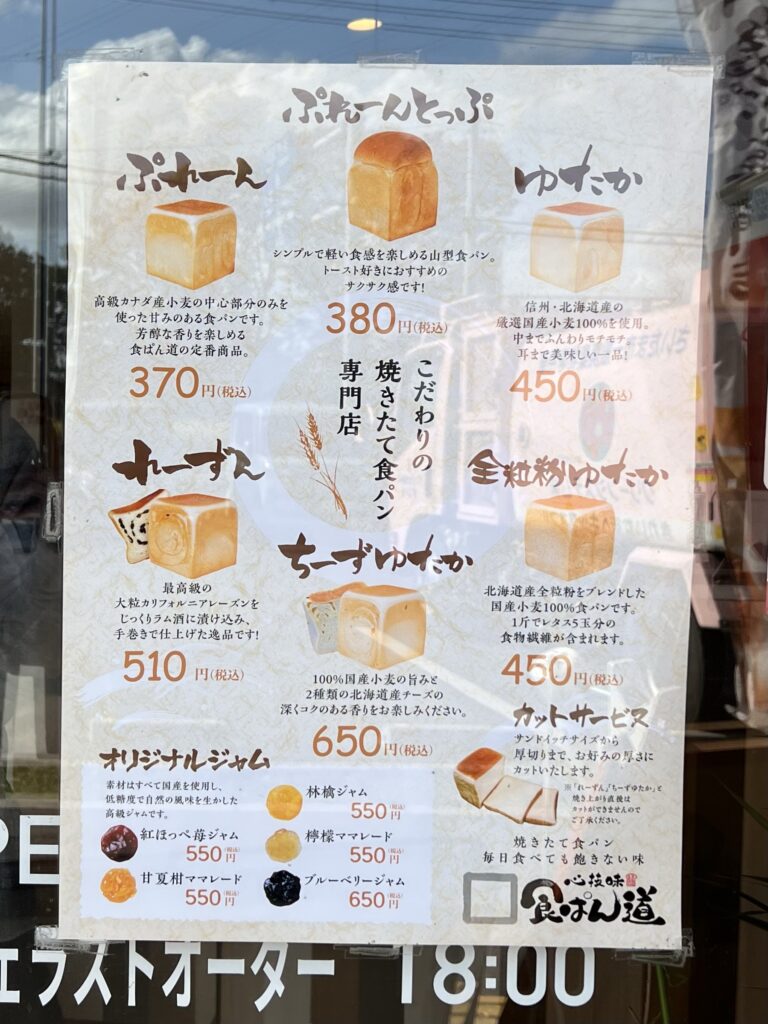 ぷれーんとっぷ
シンプルで軽い食感を楽しめる山型食パン。
トースト好きにおすすめの
サクサク感です!
380円(税込)
ぷれーん
高級カナダ産小麦の中心部分のみを
使った甘みのある食パンです。
芳醇な香りを楽しめる
食ぱん道の定番商品。
370円(税込)
ゆたか
信州・北海道産の
厳選国産小麦100%を使用。
中までふんわりモチモチ、
耳まで美味しい一品!
450円(税込)
こだわりの
焼きたて食パン
専門店
れーずん
最高級の
大粒カリフォルニアレーズンを
じっくりラム酒に漬け込み、
手巻きで仕上げた逸品です!
510円(税込)
ちーずゆたか
100%国産小麦の旨みと
2種類の北海道産チーズの
深くコクのある香りをお楽しみください。
650円(税込)
全粒粉ゆたか
北海道産全粒粉をブレンドした
国産小麦100%食パンです。
1斤でレタス5玉分の
食物繊維が含まれます。
450円(税込)
カットサービス
サンドイッチサイズから
厚切りまで、お好みの厚さに
カットいたします。
※「れーずん」「ちーずゆたか」と
焼き上がり直後は
カットができませんので
ご了承ください。
オリジナルジャム
素材はすべて国産を使用し、
低糖度で自然の風味を生かした
高級ジャムです。
紅ほっぺ苺ジャム
550円(税込)
甘夏柑ママレード
550円(税込)
林檎ジャム
550円(税込)
檸檬ママレード
550円(税込)
ブルーベリージャム
650円(税込)
焼きたて食パン
毎日食べても飽きない味
心技味
食ぱん道
PE
ェラストオーダー 18:00